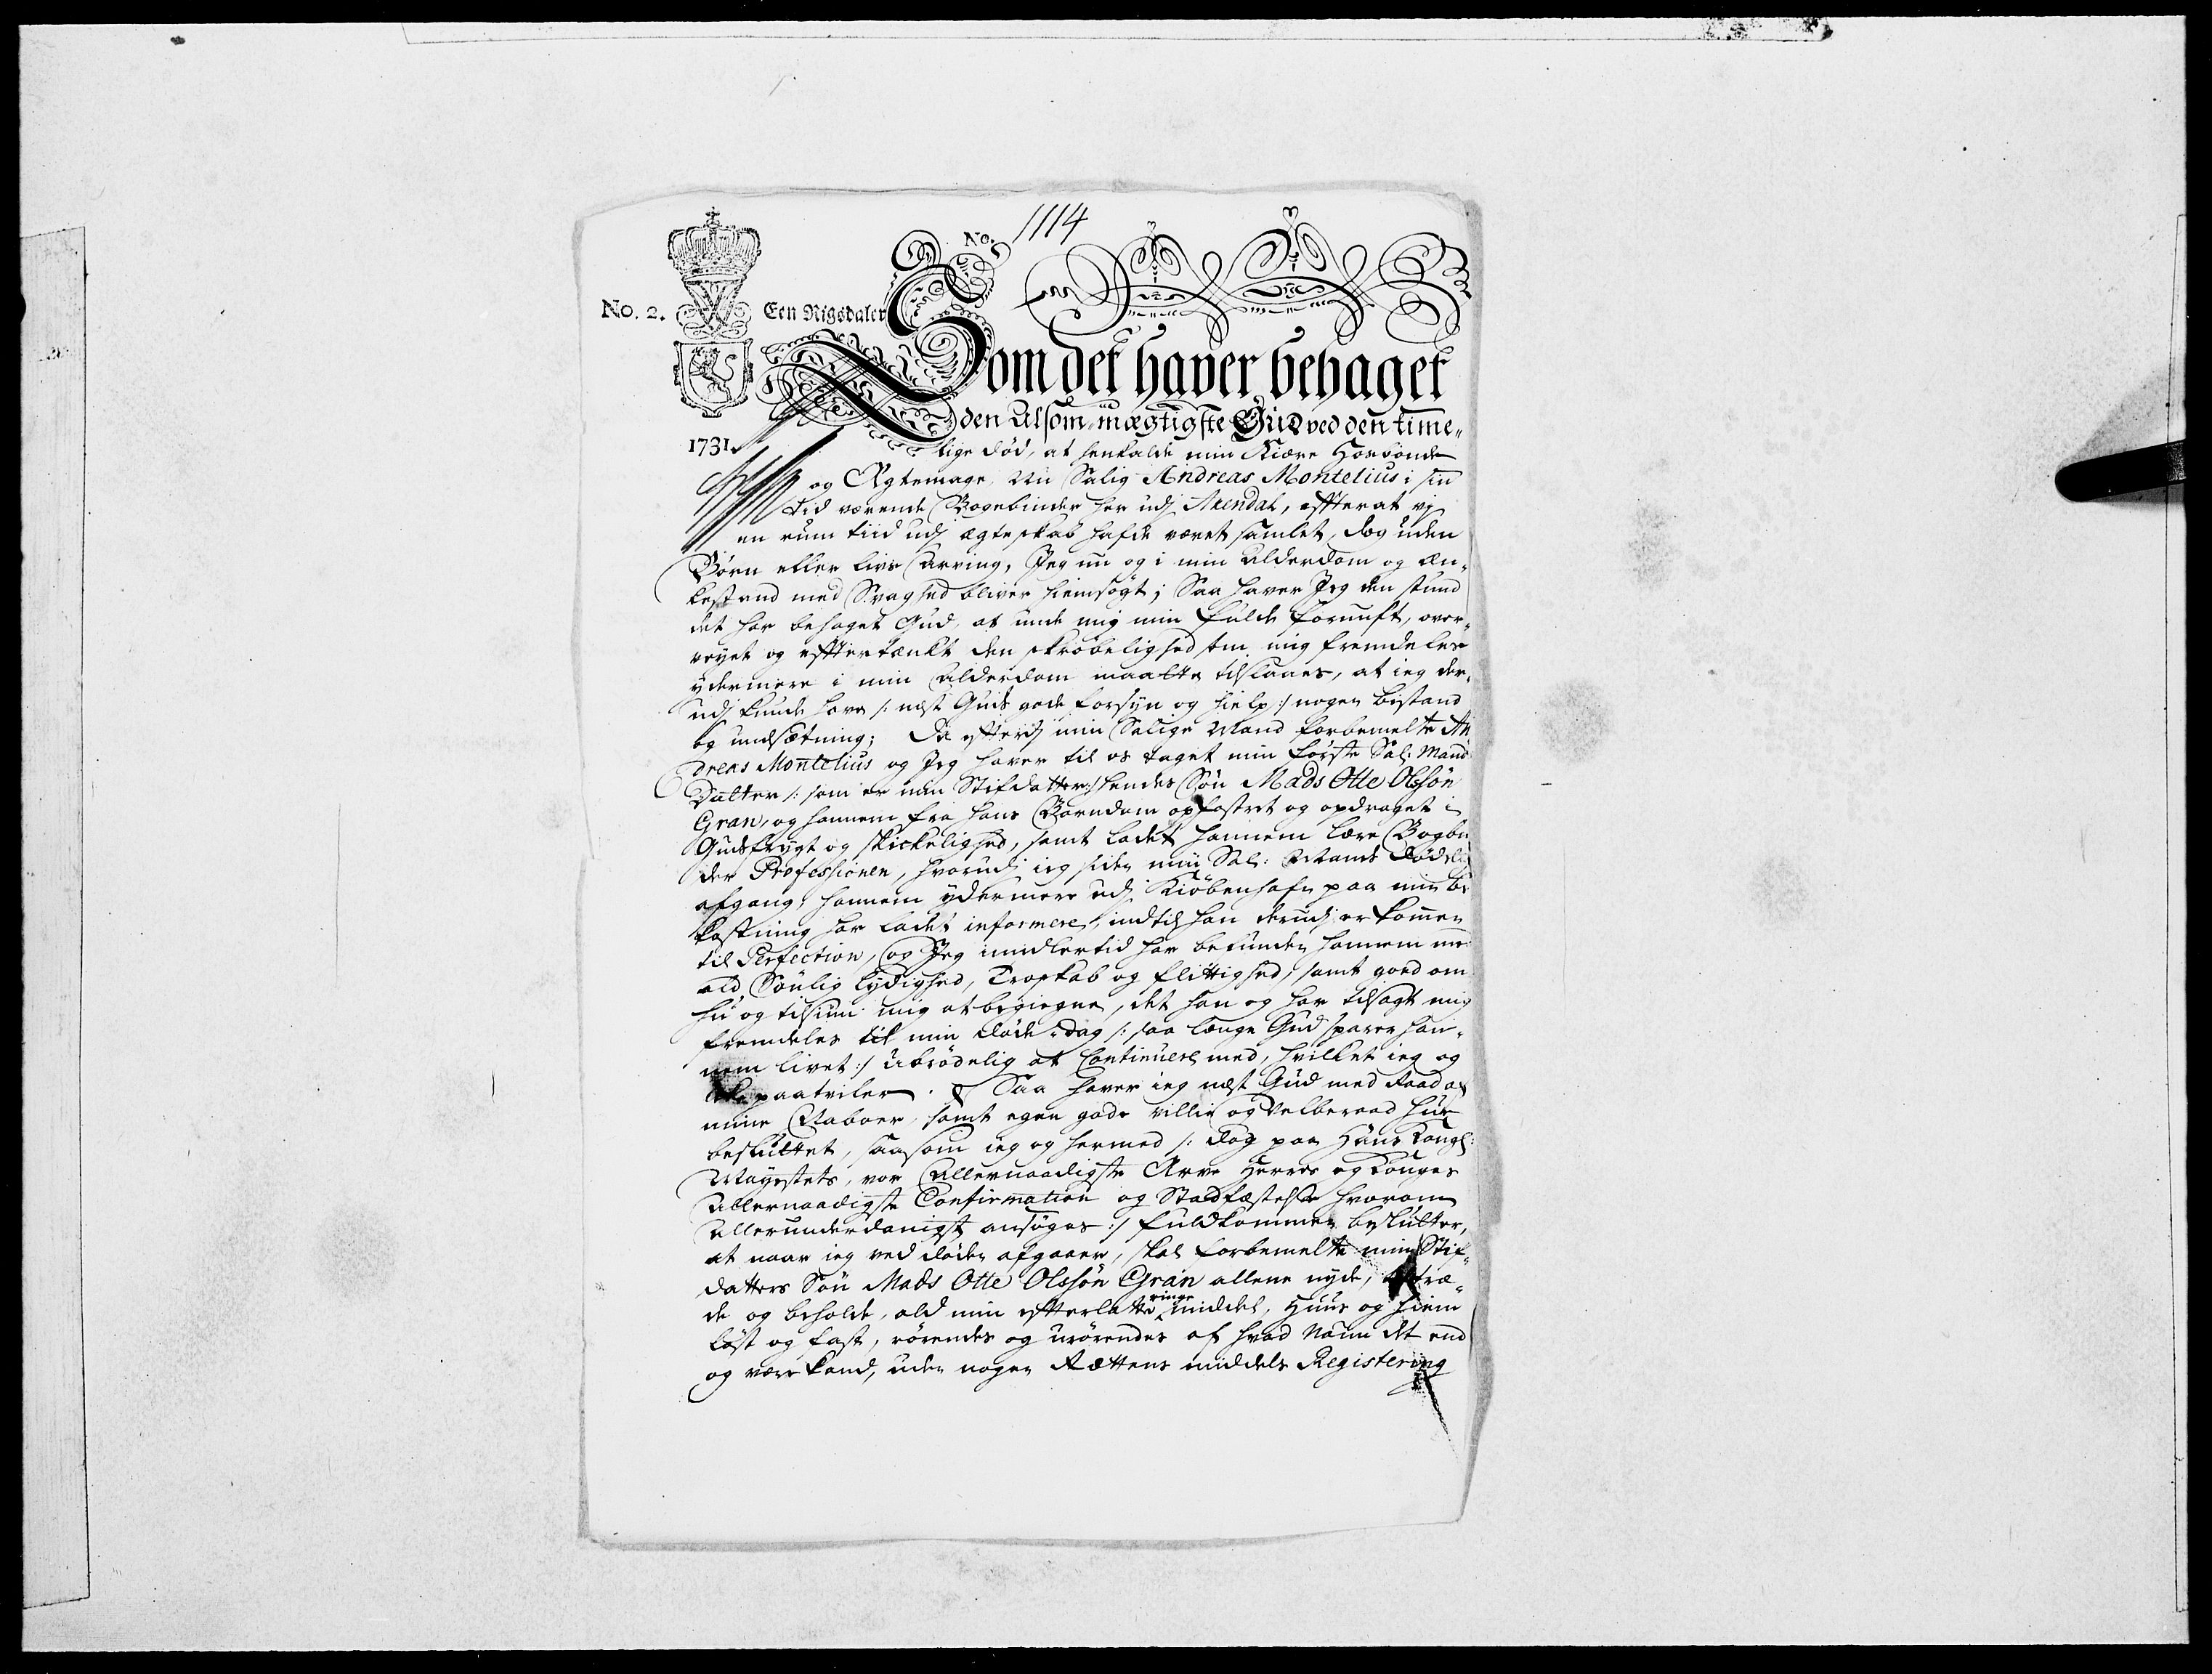 No. 1114
No. 2. Een Rigsdaler
Som det haver behaget
den Alsom-mægtigste Gud ved den time„
1731.
lige død, at henkalde min Kiære Hosbonde
og Ægtemage, Nu Salig Andreas Montelius i sin
tid værende Bogebinder her udj Arendal, efter at vj
en rum tiid udj ægteskab hafde været samlet, dog uden
Børn eller livs Arving, Jeg nu og i min Alderdom og En„
kestand med Svaghed bliver hiemsøgt; Saa haver Jeg den stund
det har behaget Gud, at unde mig min fulde fornuft, over„
veyet og eftertænkt den skrøbelighed som mig fremdeles
ydermere i min Alderdom maatte tilslaaes, at ieg der„
udj kunde have /: næst Guds gode forsyn og hielp :/ nogen bistand
og undsætning; Da efterdj min Salige Mand forbemelte An
dreas Montelius og Jeg haver til os taget min første Sal: Mands
Datter /: som er min Stifdatter :/ hendes Søn Mads Otte Olssøn
Gran, og hannem fra hans Barndom opfostret og opdraget i
Gudsfrygt og skickelighed, samt ladet hannem lære Bogbin
der Professionen, hvorudj ieg siden min Sal: Mands Dødelig
afgang, hannem ydermere udj Kiøbenhafn paa min be
kostning har ladet informere, indtil han derudj er kommen
til Perfection, og Jeg imidlertid har befunden hannem med
ald Sønlig lydighed, Troskab og flittighed, samt goed om
hu og tilsiun mig at begiegne, det han og har tilsagt mig
fremdeles til min døde-dag /: saa længe Gud sparer han„
nem livet :/ ubrødelig at Continuere med, hvilket ieg og
icke paatviler. Saa haver ieg næst Gud med Raad af
mine Naboer, samt egen gode villie og Velberaad Hue
besluttet, saasom ieg og hermed /: Dog paa Hans Kongl:
Mayestets, vor Allernaadigste Arve Herres og Konges
Allernaadigste Confirmation og Stadfæstelse hvorom
Allerunderdanigst ansøges :/ fuldkommen beslutter,
at naar ieg ved døden afgaaer, skal forbemelte min Stif„
datters Søn Mads Otte Olssøn Gran allene nyde, træ„
de og beholde, ald min efterlatte ringe middel, Huus og Hiem
løst og fast, rørendes og urørendes af hvad Nafn det end
og være kand, uden nogen Rettens middels Registering